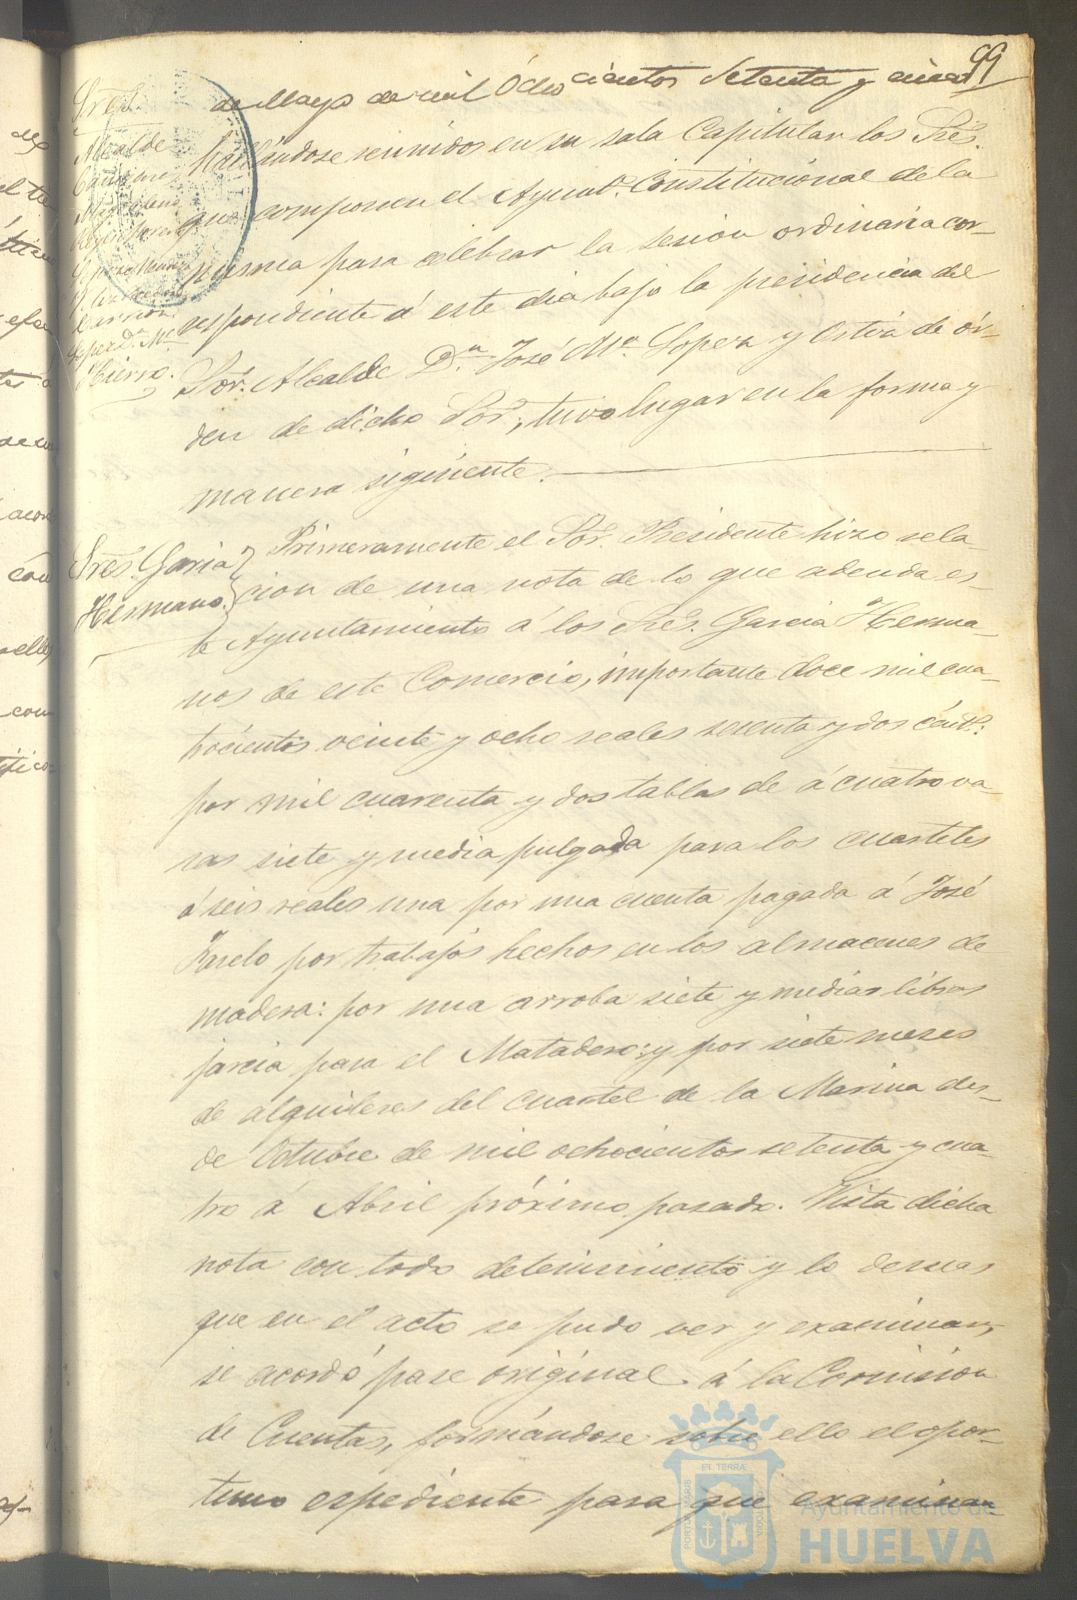 99
de Mayo de mil Ochocientos Setenta y cinco
hallándose reunidos en su sala Capitular los Sres.
que componen el Ayunt.º Constitucional de la
misma para celebrar la sesion ordinaria cor-
respondiente á este dia bajo la presidencia del
Sor. Alcalde D.n José M.a Lopez y de ór-
den de dicho Sor, tuvo lugar en la forma y
manera siguiente.
Sres.
Alcalde
Carrion.
Hierro.
Sres. Garcia
Hermano.
Primeramente el Sor. Presidente hizo rela-
cion de una nota de lo que adeuda es-
te Ayuntamiento á los Sres. Garcia Herma-
nos de este Comercio, importante doce mil cua-
trocientos veinte y ocho reales sesenta y dos cént.s
por mil cuarenta y dos tablas de á cuatro va-
ras siete y media pulgada para los cuarteles
á seis reales una por una cuenta pagada á José
por trabajos hechos en los almacenes de
madera: por una arroba siete y medias libras
jarcia para el Matadero: y por siete meses
de alquileres del cuartel de la Marina des-
de Octubre de mil ochocientos setenta y cua-
tro á Abril próximo pasado. Vista dicha
nota con todo detenimiento y lo demas
que en el acto se pudo ver y examinar,
se acordó pase original á la Comision
de Cuentas, formándose sobre ello el opor-
tuno espediente para que examinan
Ayuntamiento de
HUELVA